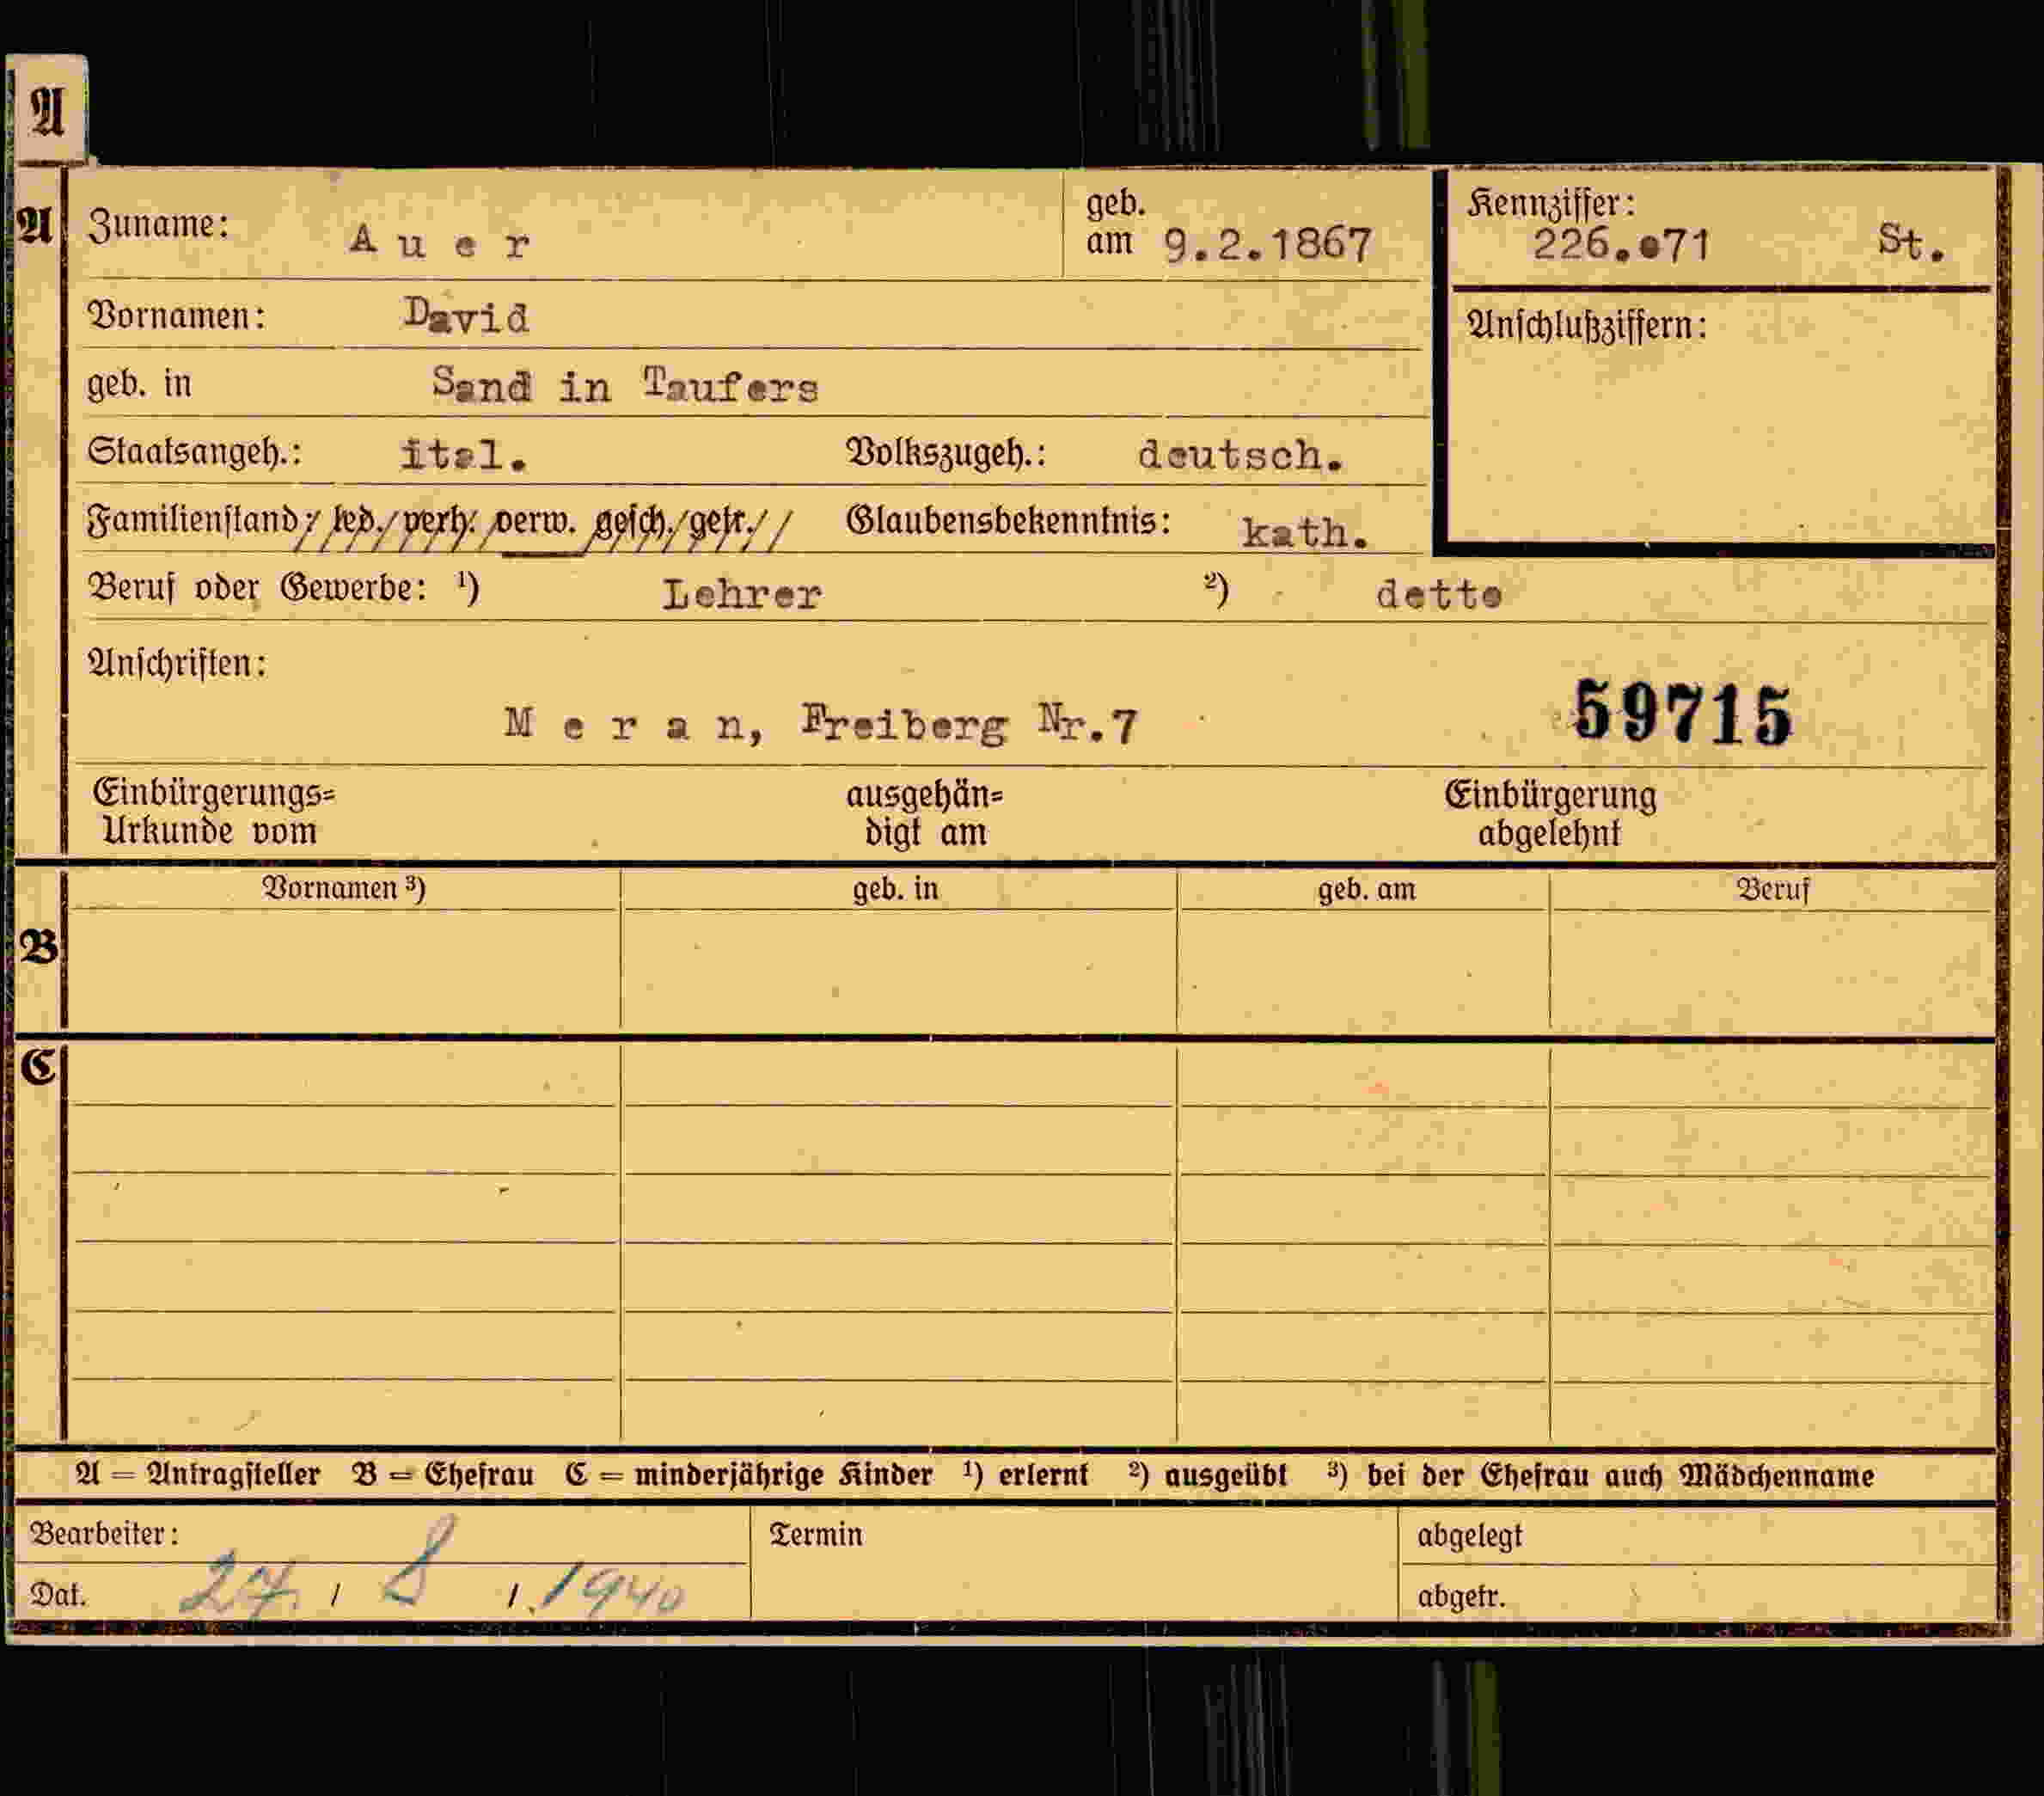 A
A Zuname: A u e r geb. am 9.2.1867 Kennziffer: 226.071 St.
Vornamen: David Anschlußziffern:
geb. in Sand in Taufers
Staatsangeh.: ital. Volkszugeh.: deutsch.
Familienstand: led. verh. verw. gesch. getr. Glaubensbekenntnis: kath.
Beruf oder Gewerbe: ¹) Lehrer ²) detto
Anschriften:
M e r a n, Freiberg Nr.7 59715
Einbürgerungs= ausgehän= Einbürgerung
Urkunde vom digt am abgelehnt
Vornamen ³) geb. in geb. am Beruf
B
C
A = Antragsteller B = Ehefrau C = minderjährige Kinder ¹) erlernt ²) ausgeübt ³) bei der Ehefrau auch Mädchenname
Bearbeiter: Termin abgelegt
Dat. 27. / 8 /. 1940 abgetr.